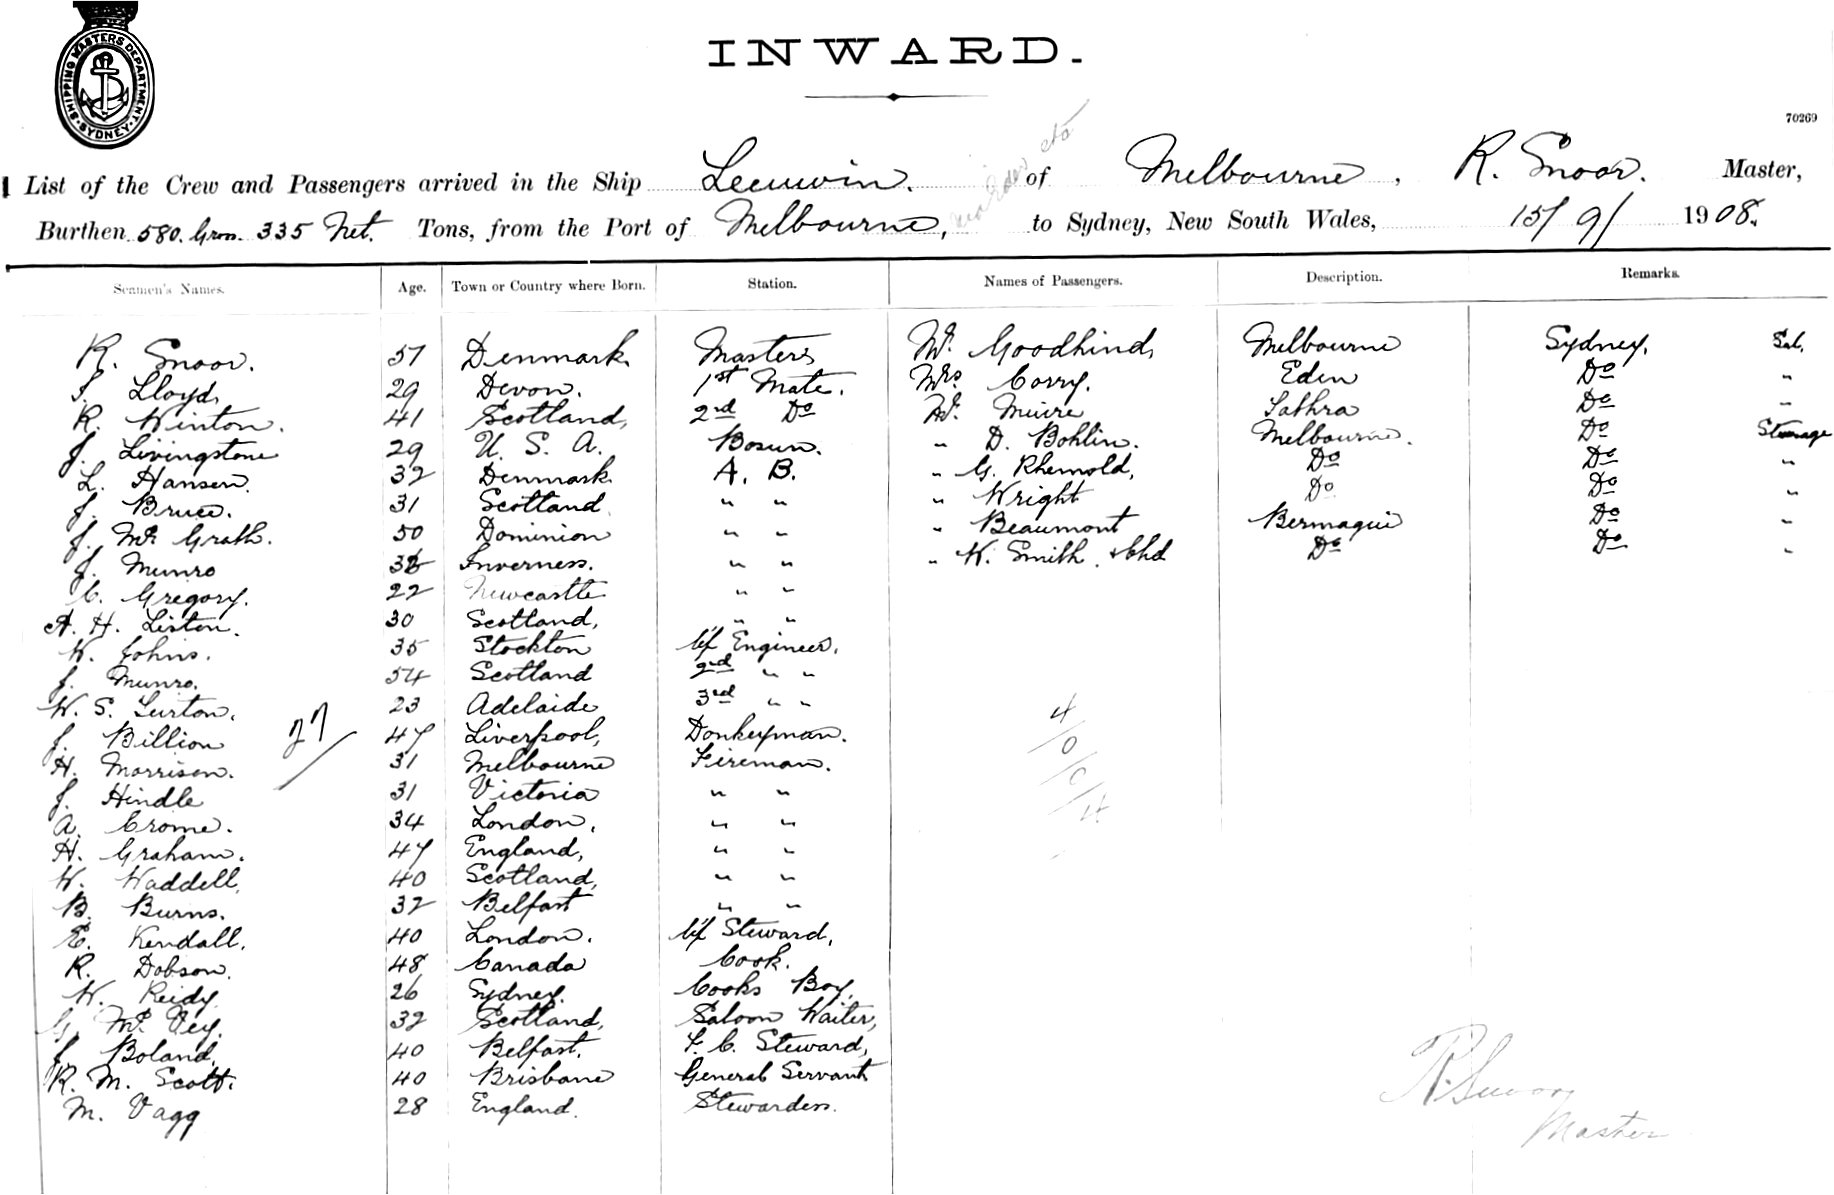 SHIPPING MASTERS DEPARTMENT. SYDNEY.
INWARD.
70269
List of the Crew and Passengers arrived in the Ship Leeuwin. of Melbourne, R. Snoor. Master,
Burthen 580. Gross. 335 Net. Tons, from the Port of Melbourne, to Sydney, New South Wales, 15/9/1908.
Seamen's Names. Age. Town or Country where Born. Station. Names of Passengers. Description. Remarks.
R. Snoor. 57 Denmark. Masters Mr. Goodhind, Melbourne Sydney, Sal.
Lloyd, 29 Devon. 1st Mate. Mrs Corry. Eden Do "
R. Winton. 41 Scotland, 2nd Do Mr. Muire Do "
J. Livingstone 29 U. S. A. Bosun. " D. Bohlin. Melbourne. Do Steerage
L. Hansen. 32 Denmark. A. B. " G. Rhemold, Do Do "
J. Bruce. 31 Scotland " " " Wright Do Do "
J. Mc Grath. 50 Dominion " " " Beaumont Bermagui Do "
J. Munro Inverness. " " " H. Smith. & Chd Do Do "
C. Gregory. 22 Newcastle " "
A. H. Liston. 30 Scotland, " "
W. Johns. 35 Stockton C/f Engineer.
J. Munro. 54 Scotland 2nd " "
W. S. Lurton. 23 Adelaide 3rd " "
J. Billion 47 Liverpool, Donkeyman.
27/
4/0/0/4
H. Morrison. 31 Melbourne Fireman.
J. Hindle 31 Victoria " "
A. Crome. 34 London. " "
H. Graham. 47 England, " "
W. Waddell, 40 Scotland, " "
B. Burns. 32 Belfast " "
E. Kendall, 40 London. C/f Steward,
R. Dobson. 48 Canada Cook.
W. Reidy. 26 Sydney. Cooks Boy,
G. Mc Vey. 32 Scotland, Saloon Waiter,
J. Boland, 40 Belfast. F. C. Steward,
R. M. Scott. 40 Brisbane General Servant
M. Vagg 28 England. Stewardess.
R. Snoor
Master